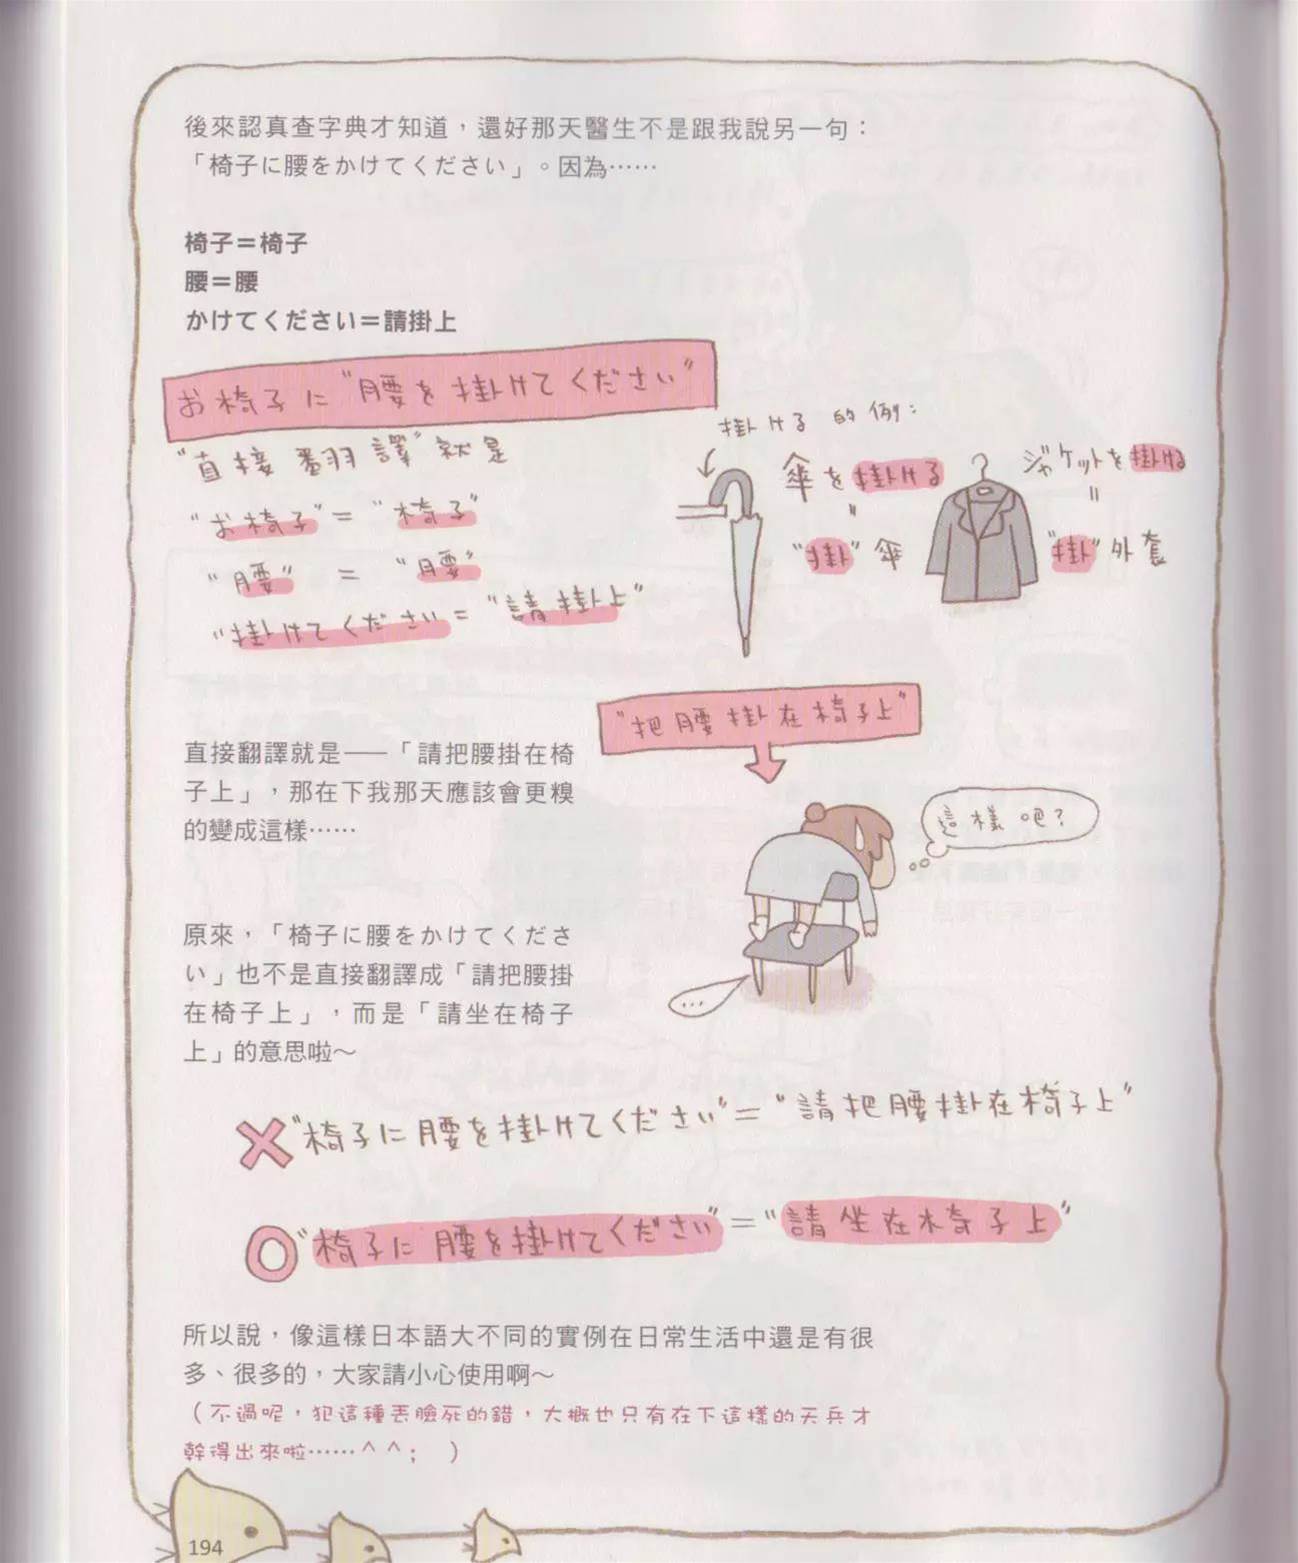 後來認真查字典才知道，還好那天醫生不是跟我說另一句：
「椅子に腰をかけてください」。因為……
椅子＝椅子
腰＝腰
かけてください＝請掛上
お椅子に"腰を掛けてください"
"直接翻譯"就是
"お椅子"="椅子"
"腰" = "腰"
"掛けてください"="請掛上"
掛ける的例：
傘を掛ける
=
"掛"傘
ジャケットを掛ける
=
"掛"外套
"把腰掛在椅子上"
直接翻譯就是——「請把腰掛在椅
子上」，那在下我那天應該會更糗
的變成這樣……
這樣吧？
...
原來，「椅子に腰をかけてくださ
い」也不是直接翻譯成「請把腰掛
在椅子上」，而是「請坐在椅子
上」的意思啦～
✕"椅子に腰を掛けてください"="請把腰掛在椅子上"
○"椅子に腰を掛けてください"="請坐在椅子上"
所以說，像這樣日本語大不同的實例在日常生活中還是有很
多、很多的，大家請小心使用啊～
（不過呢，犯這種丟臉死的錯，大概也只有在下這樣的天兵才
幹得出來啦……＾＾；　）
194